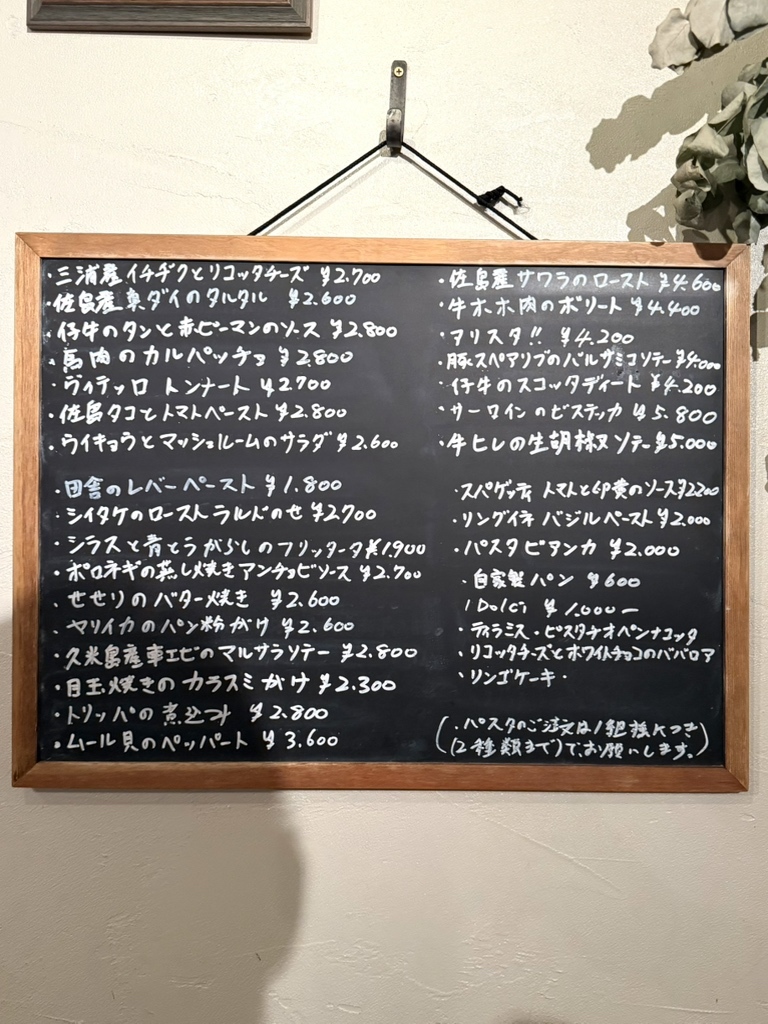 ・三浦産イチヂクとリコッタチーズ ¥2.700
・佐島産真ダイのタルタル ¥2.600
・仔牛のタンと赤ピーマンのソース ¥2.800
・馬肉のカルパッチョ ¥2.800
・ヴィテッロ トンナート ¥2700
・佐島タコとトマトペースト ¥2.800
・ウイキョウとマッシュルームのサラダ ¥2.600
・田舎のレバーペースト ¥1.800
・シイタケのロースト ラルドのせ ¥2700
・シラスと青とうがらしのフリッタータ ¥1.900
・ポロネギの蒸し焼きアンチョビソース ¥2.700
・せせりのバター焼き ¥2.600
・ヤリイカのパン粉がけ ¥2.600
・久米島産車エビのマルサラソテー ¥2.800
・目玉焼きのカラスミがけ ¥2.300
・トリッパの煮込み ¥2.800
・ムール貝のペッパート ¥3.600
・佐島産サワラのロースト ¥4.600
・牛ホホ肉のボリート ¥4.400
・アリスタ!! ¥4.200
・豚スペアリブのバルサミコソテー ¥4.000
・仔牛のスコッタディート ¥4.200
・サーロインのビステッカ ¥5.800
・牛ヒレの生胡椒ソテー ¥5.000
・スパゲッティ トマトと卵黄のソース ¥2200
・リングイネ バジルペースト ¥2.000
・パスタビアンカ ¥2.000
・自家製パン ¥600
Dolci ¥1.000ー
・ティラミス・ピスタチオパンナコッタ
・リコッタチーズとホワイトチョコのババロア
・リンゴケーキ・
(・パスタのご注文は1組様につき
(2種類まで)で、お願いします。)